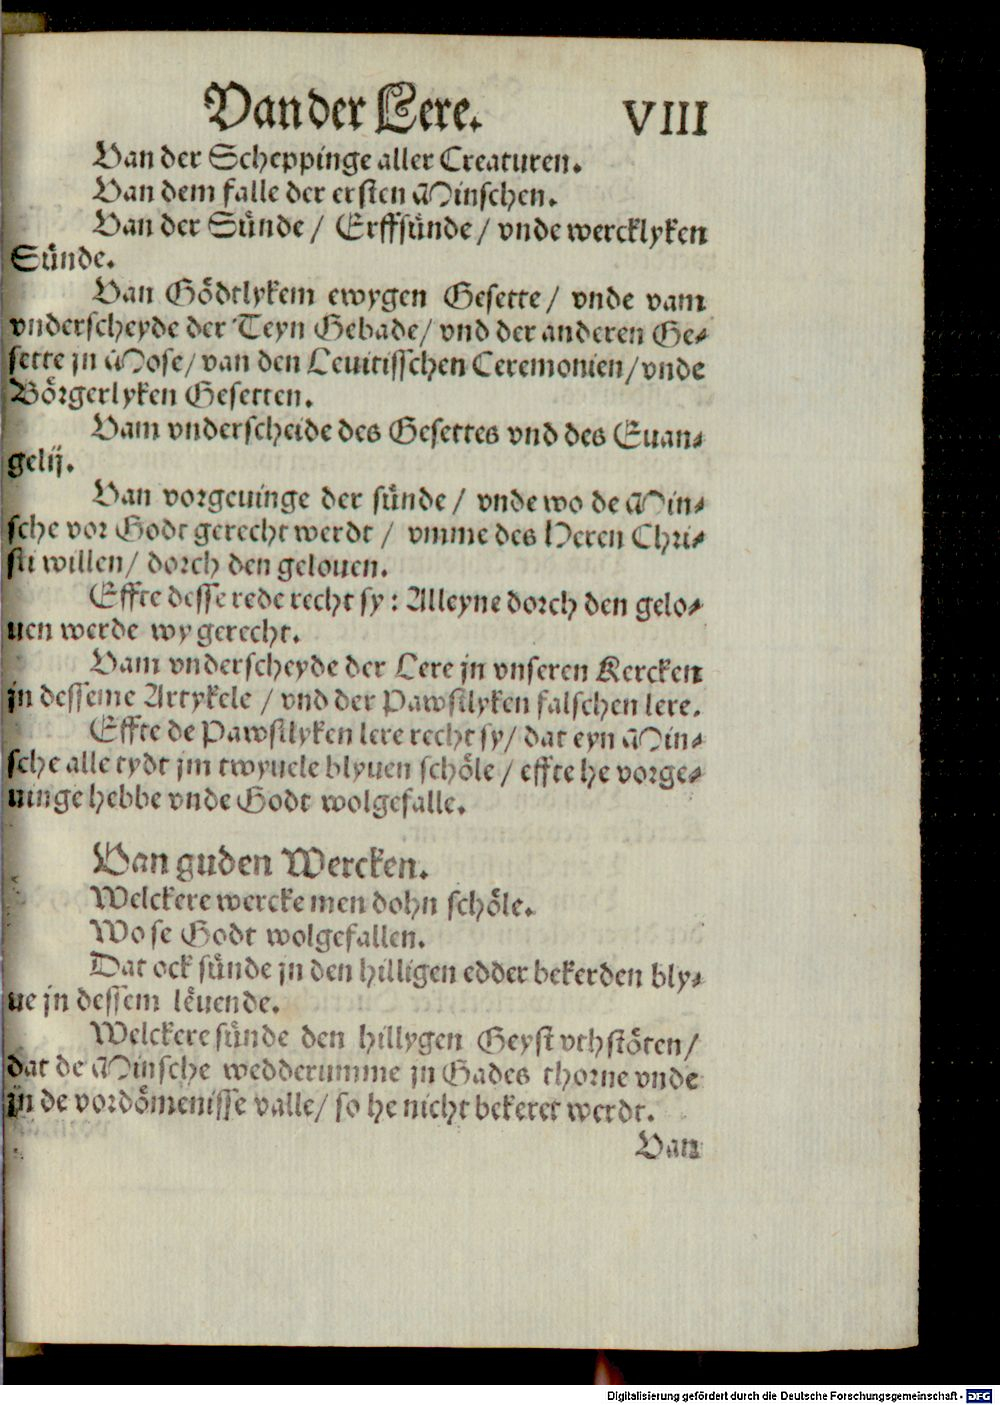 Van der Lere. VIII
Van der Scheppinge aller Creaturen.
Van dem falle der ersten Minschen.
Van der Sünde / Erffsünde / vnde wercklyken
Sünde.
Van Gödtlykem ewygen Gesette / vnde vam
vnderscheyde der Teyn Gebade / vnd der anderen Ge-
sette jn Mose / van den Leuitisschen Ceremonien / vnde
Börgerlyken Gesetten.
Vam vnderscheide des Gesettes vnd des Euan-
gelij.
Van vorgeuinge der sünde / vnde wo de Min-
sche vor Godt gerecht werdt / vmme des Heren Chri-
sti willen / dorch den gelouen.
Effte desse rede recht sy : Alleyne dorch den gelo-
uen werde wy gerecht.
Vam vnderscheyde der Lere jn vnseren Kercken
jn desseme Artykele / vnd der Pawstlyken falschen lere.
Effte de Pawstlyken lere recht sy / dat eyn Min-
sche alle tydt jm twyuele blyuen schöle / effte he vorge-
uinge hebbe vnde Godt wolgefalle.
Van guden Wercken.
Welckere wercke men dohn schöle.
Wo se Godt wolgefallen.
Dat ock sünde jn den hilligen edder bekerden bly-
ue jn dessem lëuende.
Welckere sünde den hillygen Geyst vthstöten /
dat de Minsche wedderumme jn Gades thorne vnde
jn de vordömenisse valle / so he nicht bekeret werdt.
Van
Digitalisierung gefördert durch die Deutsche Forschungsgemeinschaft - DFG